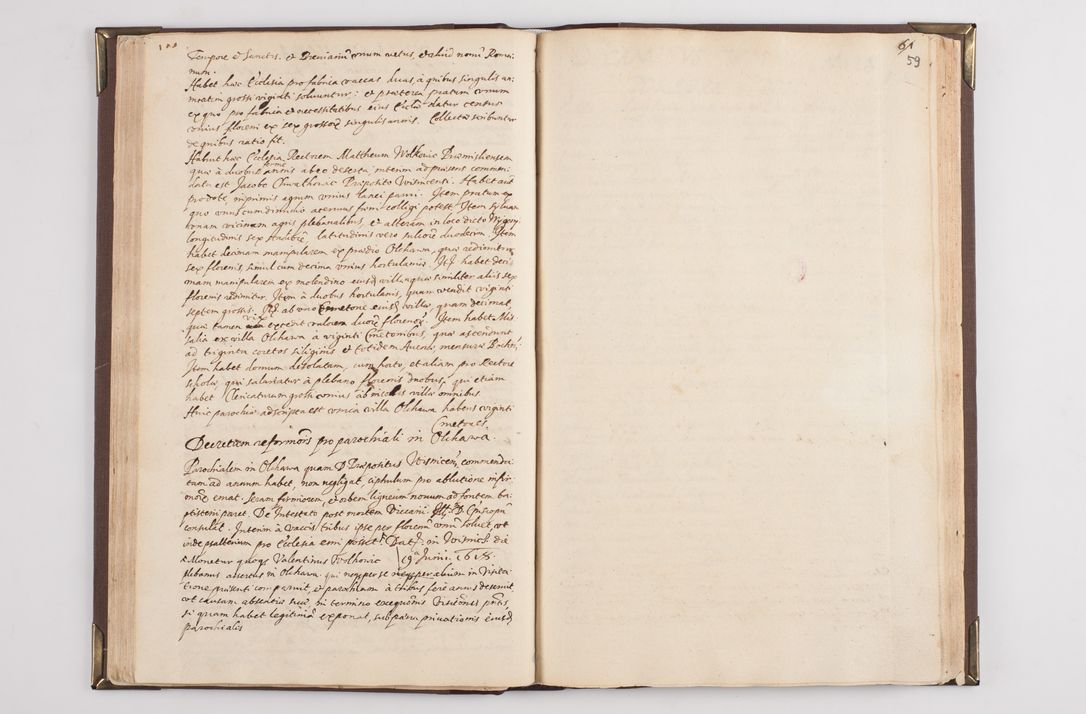 Tempore & Sanctis. et Breviariũ unum vetus, et aliud novũ Roma-
num.
Habet hæc Ecclesia pro fabrica vaccas duas, à quibus singulis an-
nis grossi viginti solvuntur: et præterea pratum unum
ex quo pro fabrica et necessitatibus eius Ecclæ datur census
unius floreni ex sex grossoꝝ singulis annis. Collectæ scribuntur
de quibus ratio fit.
Habuit hæc Ecclesia Rectorem Mattheum Wolkovic Præmisliensem
qua à duobus ferme annis abeo deserta interim ad præsens commen-
data est Jacobo Præposito Visnicensi. Habet aũt
pro dote, inprimis agrum unius lanei parvi. Item pratum ex
quo unus cum dimidio acervus fœni colligi potest. Item sylvam
bonam vicinam agris plebanalibus, et alteram in loco dicto
longitudinis sex stadioꝝ, latitudinis vero sulcoꝝ duodecim. Item
habet decimam manipularem ex prædio Olchawa, quæ redimitur
sex florenis, simul cum decima unius hortulaniæ. Itẽ habet deci-
mam manipularem ex molendino eiusdẽ villæ, quæ similiter aliis sex
florenis redimitur. Item à duobus hortulanis, quam vendit viginti
septem grossis. Itẽ ab uno Cmetone eiusdẽ villæ, quam decimat,
quæ tamen vix excedit valorem duoꝝ florenoꝝ. Item habet Mis-
salia ex villa Olchawa à viginti Cmetonibus, quæ ascendunt
ad triginta coretos siliginis et totidem Avenæ, mensuræ
Item habet domum desolatam, cum horto, et aliam pro Rectore
scholæ, qui salariatur à plebano florenis duobus, qui etiam
habet Clericaturam grossi unius ab incolis villæ omnibus.
Huic parochiæ adscripta est unica villa Olchawa habens viginti
Cmetones.
Decretum reformonis pro parochiali in Olchawa.
Parochialem in Olchawa quam D Præpositus Visnicens commenda-
tam ad annum habet, non negligat, ciphulum pro ablutione infir-
moꝝ emat. Seram firmiorem, et orbem ligneum novum ad fontem ba-
ptismi paret. De Intestato post mortem Viccani Illm D Episcopum
consulat. Interim à vaccis tribus ipse per florenũ unũ solvet, vt
inde psalterium pro Ecclesia emi posset. Dat: in Visnicz die
Monetur quoqꝫ Valentinus Wolkovic 19 Junii. 1618.
plebanus assertus in Olchawa. qui neqꝫ per se neqꝫ per alium in Visita-
tione præsenti comparuit, et parochiam à tribus fere annis deseruit,
vt causam absentiæ suæ, in termino exequenũs Visitonis pntis,
si quam habet legitimã exponat, sub pæna privationis eiusdẽ
parochialis
61
59